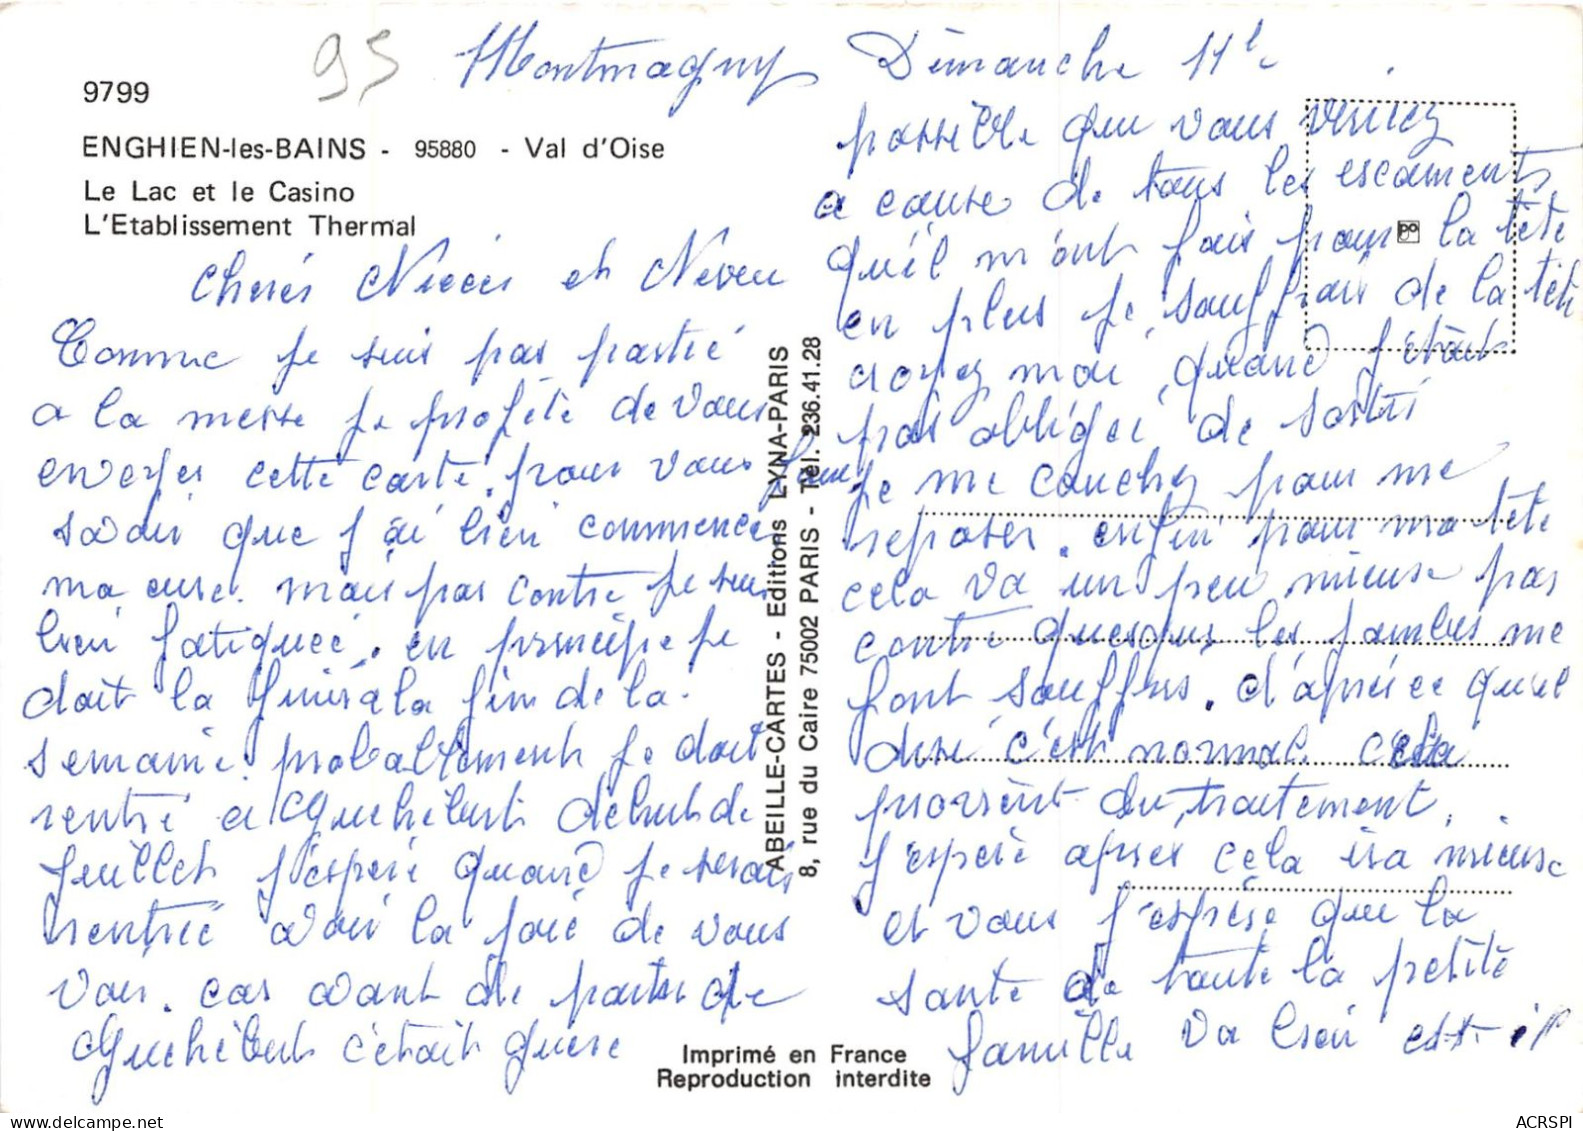 95
Montmagny Dimanche 11 
9799
ENGHIEN-les-BAINS - 95880 - Val d'Oise
Le Lac et le Casino
L'Etablissement Thermal
Cheres Nieces et Neveu
Comme je suis pas partie
a la messe je profite de vous
envoyer cette carte. pour vous faire
savoir que j'ai bien commencer
ma cure. mais par contre je suis
bien fatiguée. en principe je
doit la finir a la fin de la
semaine. probablement je doit
rentré a Guehébert debut de
juillet j'espere quand je serais
rentrée avoir la joie de vous
voir. car avant de partir de
Guehébert c'était guere
possible que vous veniez
a cause de tous les escaments
qu'il m'ont fais pour la tête
en plus je souffrais de la tête
croyez moi, quand j'étais
pas obligée de sorti
je me couchez pour me
reposer. enfin pour ma tête
cela va un peu mieuse par
contre quesque les jambes me
font souffers. d'après ce qu'il
dise c'est normal. cela
provient du traitement.
j'espere apres cela ira mieuse
et vous j'espère que la
sante de toute la petite
famille va bien est-il
ABEILLE-CARTES - Editions LYNA-PARIS
8, rue du Caire 75002 PARIS - Tél. 236.41.28
Imprimé en France
Reproduction interdite
ACRSPI